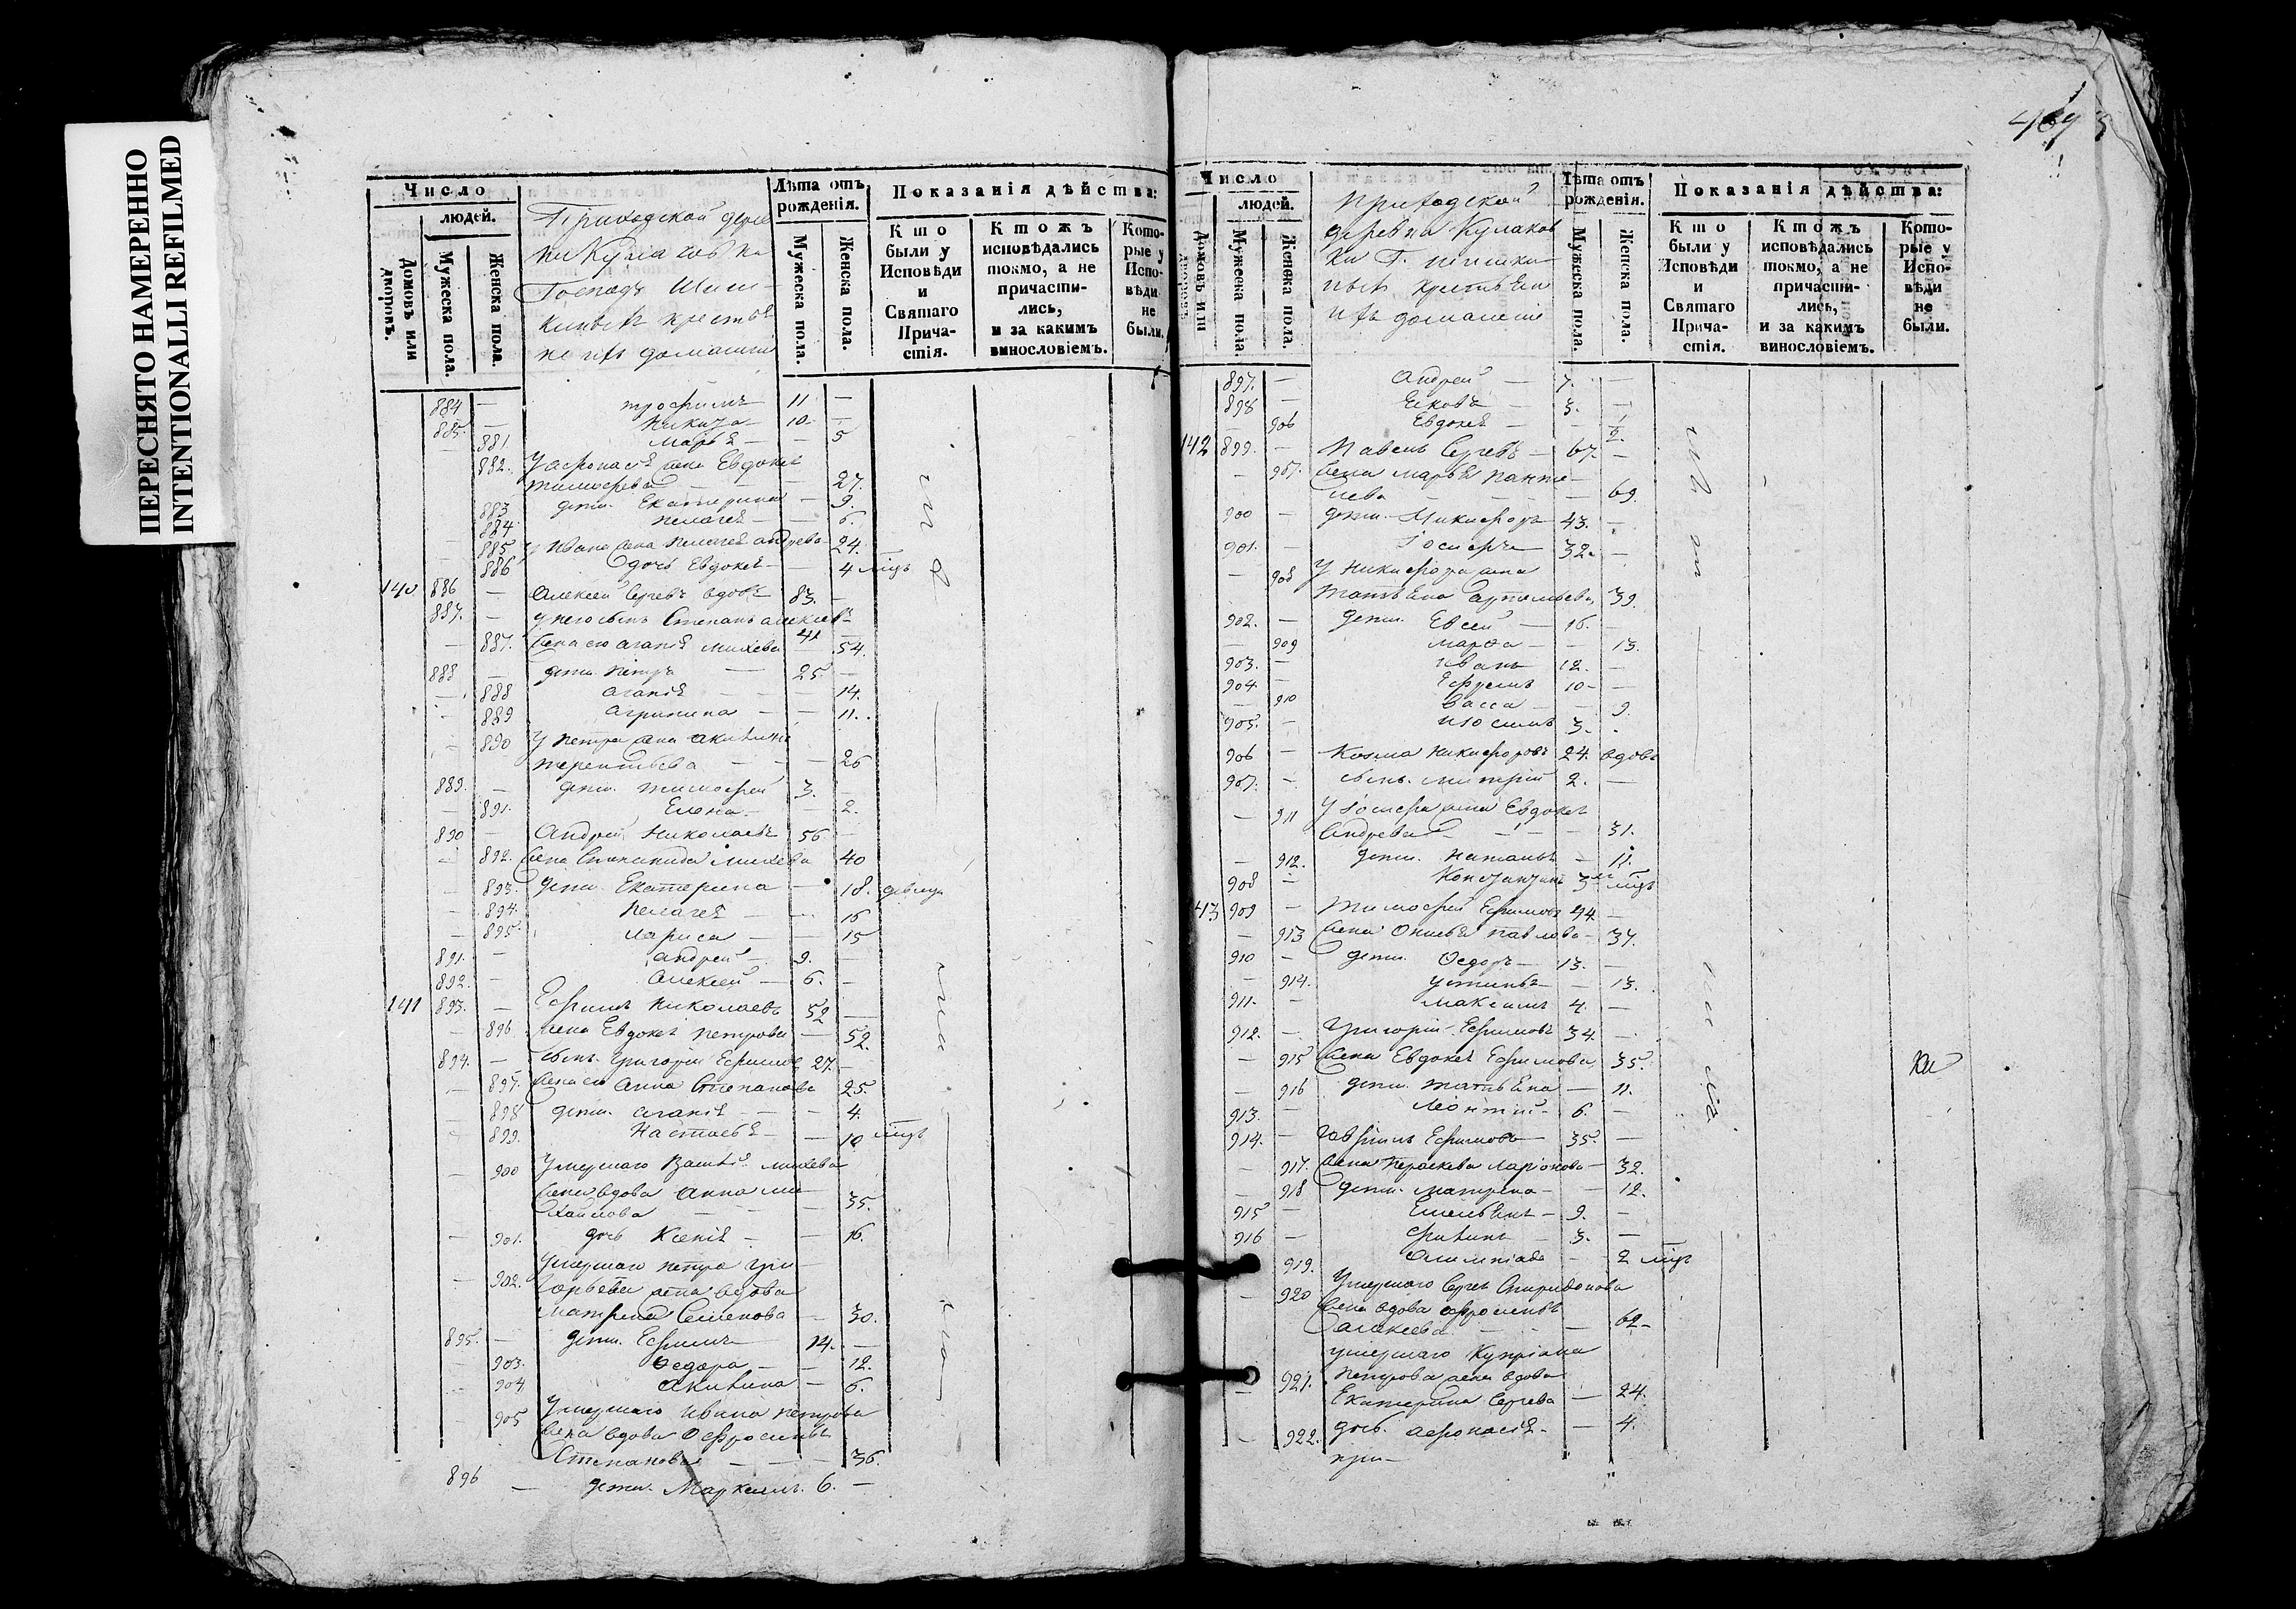 ПЕРЕСНЯТО НАМЕРЕННО
INTENTIONALLI REFILMED
Число
людей.
Домовъ или дворовъ.
Мужеска пола.
Женска пола.
Приходской дере
Господъ Шиш-
киныхъ крестья
не ихъ домашніи
Лѣта отъ рожденія.
Мужеска пола.
Женска пола.
Показанія дѣйства:
Кто были у Исповѣди и Святаго Прича-стія.
Ктожъ исповѣдались токмо, а не причасти-лись, и за какимъ винословіемъ.
Кото-рые у Испо-вѣди не были.
884 — трофимъ 11 —
885. — Никита 10 —
— 881 Марья — — 5
882. У афонасія жена Евдокея
тимофеева — 27.
883 дети. Екатерина — 9.
884 пелагея — — 6.
— 885 у ивана жена пелагея андреева 24.
— 886 дочь Евдокея — 4 мцъ
140 886 — Алексей Сергеевъ вдовъ 83. —
887. — у него сынъ Степанъ алексеевъ
41 —
— 887. жена его агапія михеева 54.
888 — дети. петръ — 25. —
— 888 агапія — — 14.
— 889 агрипина — — 11.
— 890 у петра жена акилина
терентьева — — 26
889. — дети. тимофей 3. —
— 891. Елена — — 2.
890 — Андрей Николаевъ 56 —
— 892. жена Степанида михеева 40
— 893. дети. Екатерина — 18. девица
— 894. пелагея — — 16
— 895. лариса — — 15
891. — андрей — 9. —
892. — алексей — 6. —
141 893. — Ефимъ Николаевъ 52 —
— 896 жена Евдокея петрова — 52.
894. — сынъ. григорій Ефимов 27. —
— 897. жена его анна Степанова 25.
— 898 дети. агапія — — 4
— 899. Настасья — — 10 мцъ
— 900 умершаго Василія михеева
жена вдова анна ми-
хайлова — — 35.
— 901. дочь Ксенія — — 16.
умершаго петра гри-
— 902. горьева жена вдова
матрена Семенова — 30.
895. — дети. Ефимъ — 14. —
— 903. Ѳедора — — 12.
— 904 акилина — 6.
умершаго ивана петрова
— 905 жена вдова Офросинья
Степанова — — 36.
896 — дети. Маркелъ. 6. —
469
Число
людей.
Домовъ или дворовъ.
Мужеска пола.
Женска пола.
приходской
деревни Кулаков
ки Г. шишки-
ныхъ крестьяне
ихъ домашніе
Лѣта отъ рожденія.
Мужеска пола.
Женска пола.
Показанія дѣйства:
Кто были у Исповѣди и Святаго Прича-стія.
Ктожъ исповѣдались токмо, а не причасти-лись, и за какимъ винословіемъ.
Кото-рые у Испо-вѣди не были.
897. — андрей — 7. —
898 — Яковъ — 3. —
— 906 Евдокея — — 1/2.
142 899. — Павелъ Сергеевъ — 67. —
— 907. жена марья панте-
леева — — 69.
900 — дети. Никифоръ 43. —
901. — Іосифъ 32. —
— 908 У Никифора жена
татьяна артемьева 39.
902. — дети. Евсей — 16. —
— 909 марѳа — — 13.
903. — иванъ 12. —
904 — Ефремъ 10 — —
— 910 васса — — 9.
905. — 3.
906 — Козма Никифоровъ 24. вдовъ
907. — сынъ. митрій 2. —
— 911 У Іосифа жена Евдокея
андреева — — 31.
— 912. дети. наталья — 11.
908 — Констянтинъ 3 мцъ
143 909 — тимофей Ефимовъ 44 —
— 913 жена павлова — 37.
910 — дети. Ѳедоръ — 13. —
— 914. устинья — 13.
911. — максимъ 4. —
912. — Григорій Ефимовъ 34. —
— 915 жена Евдокея Ефимова 35.
— 916 дети. татьяна — 11.
913. — леонтій — 6. —
914. — Гаврилъ Ефимовъ 35. —
— 917. жена параскева ларіонова — 32.
— 918 дети. матрена — — 12.
915 — Емельянъ — 9. —
916 — филипъ — 3. —
919. Олимпіада — 2 мцъ
— 920 умершаго Сергея Спиридонова
жена вдова афросинья
алексеева — — 62 —
умершаго Купріана
— 921. петрова жена вдова
Екатерина Сергеева — 24.
— 922. дочь. афонасія — — 4.
при —